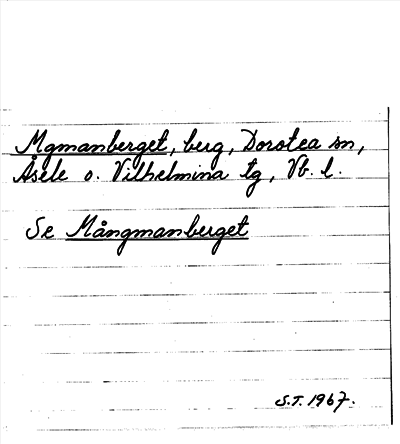 Mgmanberget, berg, Dorotea sn,
Åsele o. Vilhelmina tg, Vb. l.
Se Mångmanberget
S.T. 1967.